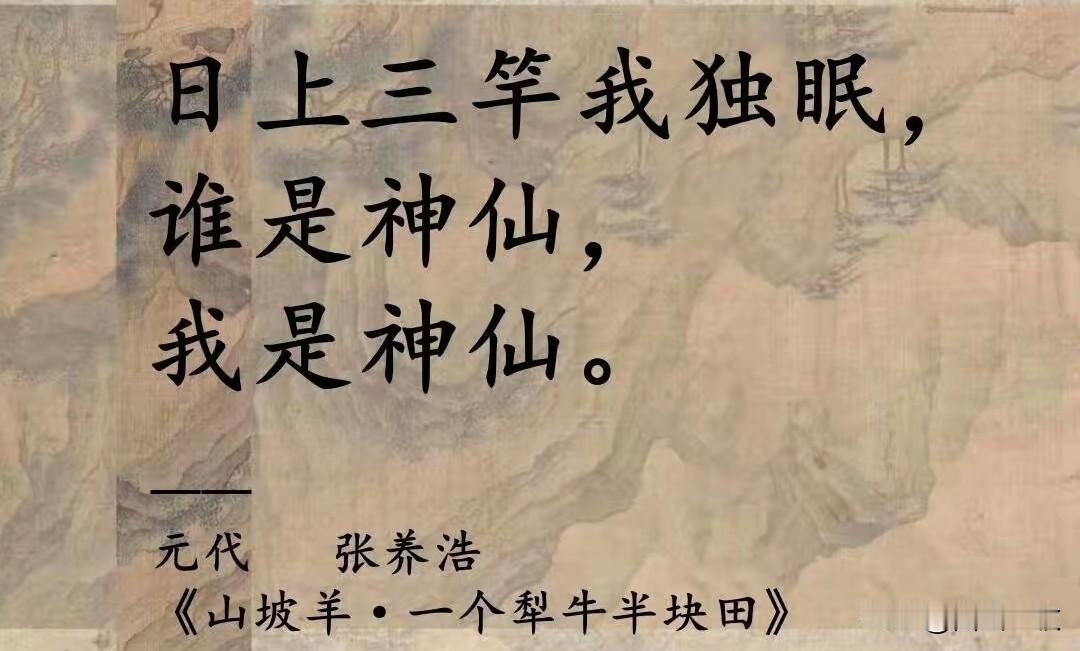 日上三竿我独眠，
谁是神仙，
我是神仙。
——
元代 张养浩
《山坡羊·一个犁牛半块田》